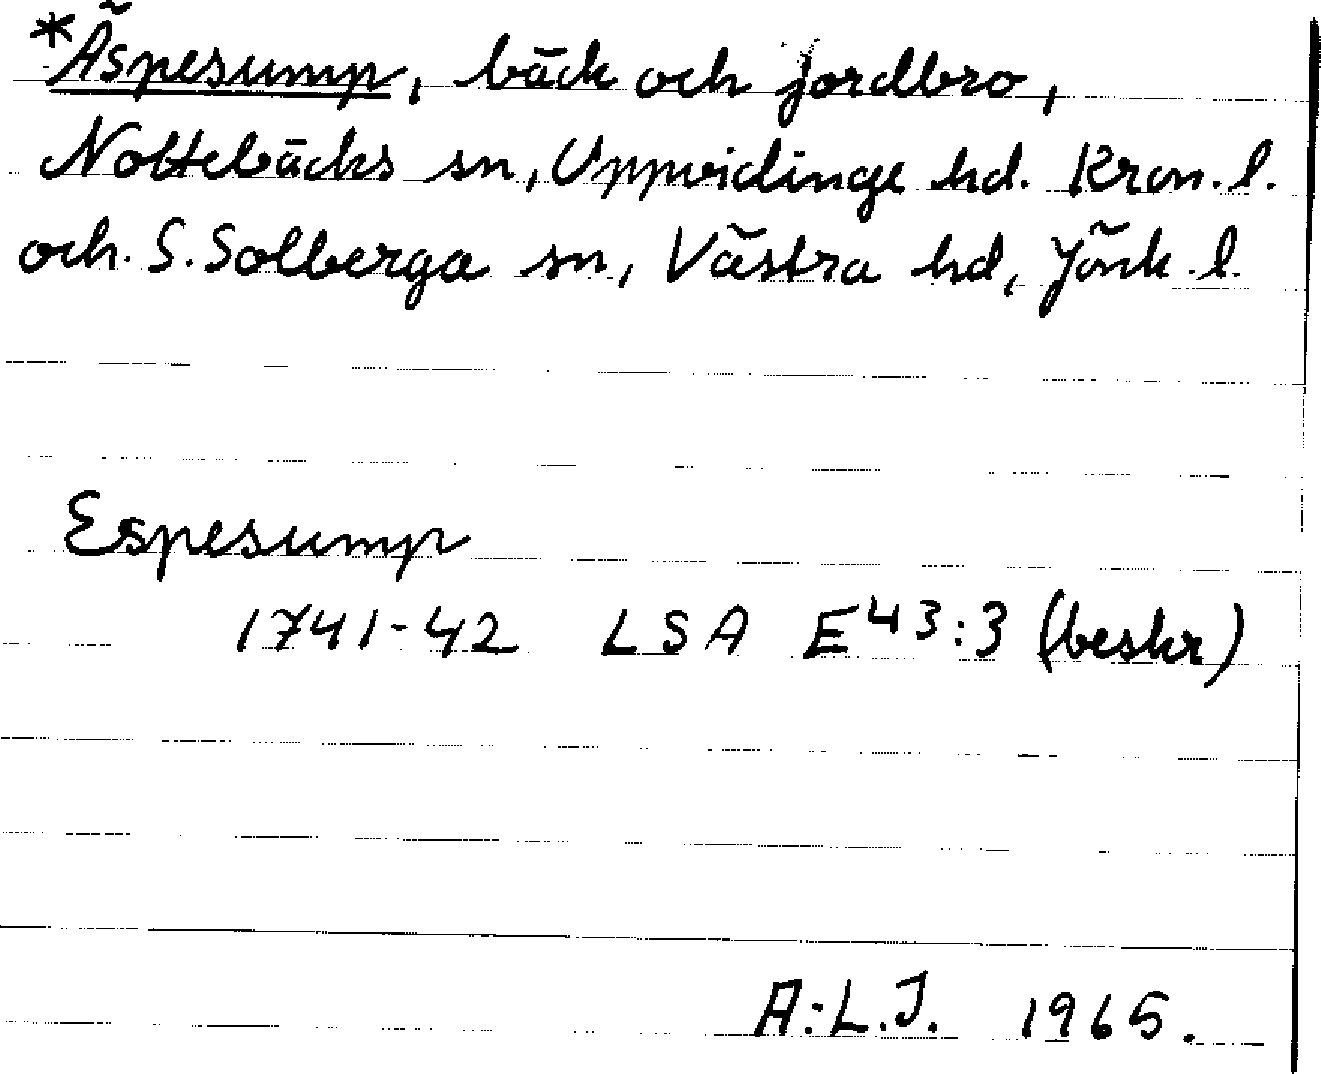 *Äspesump, bäck och jordbro,
Nottebäcks sn, Uppvidinge hd. Kron. l.
och. S. Solberga sn, Västra hd, Jönk. l.
Espesump
1741-42 LSA E43:3 (beskr)
A:L.J. 1965.